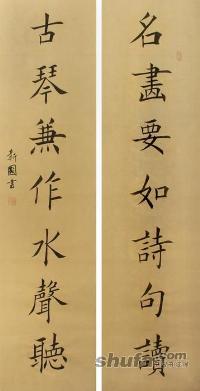 名畫要如詩句讀
古琴兼作水聲聽
新國書
shufa